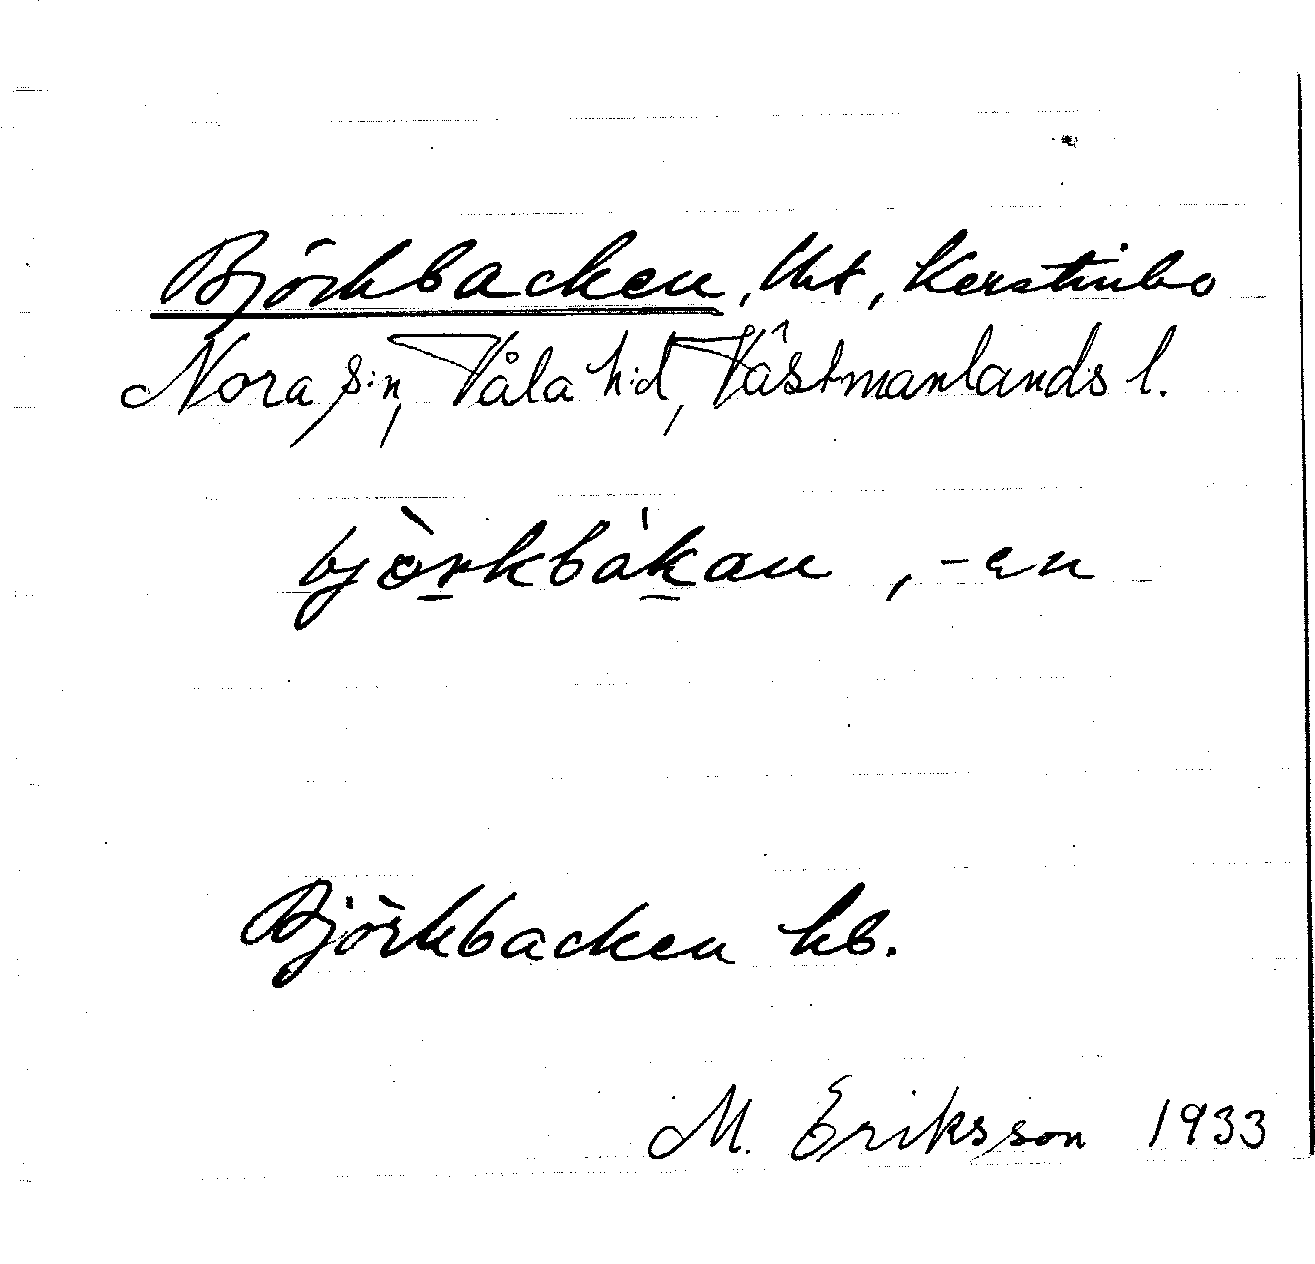 Björkbacken, lht, Kerstinbo
Nora s:n, Våla h:d, Västmanlands l.
bjò̈rkbákan, -en
Björkbacken hb.
M. Eriksson 1933